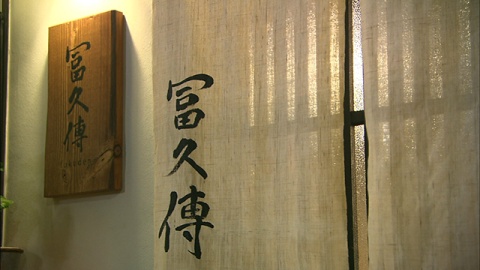 冨久傳
冨久傳